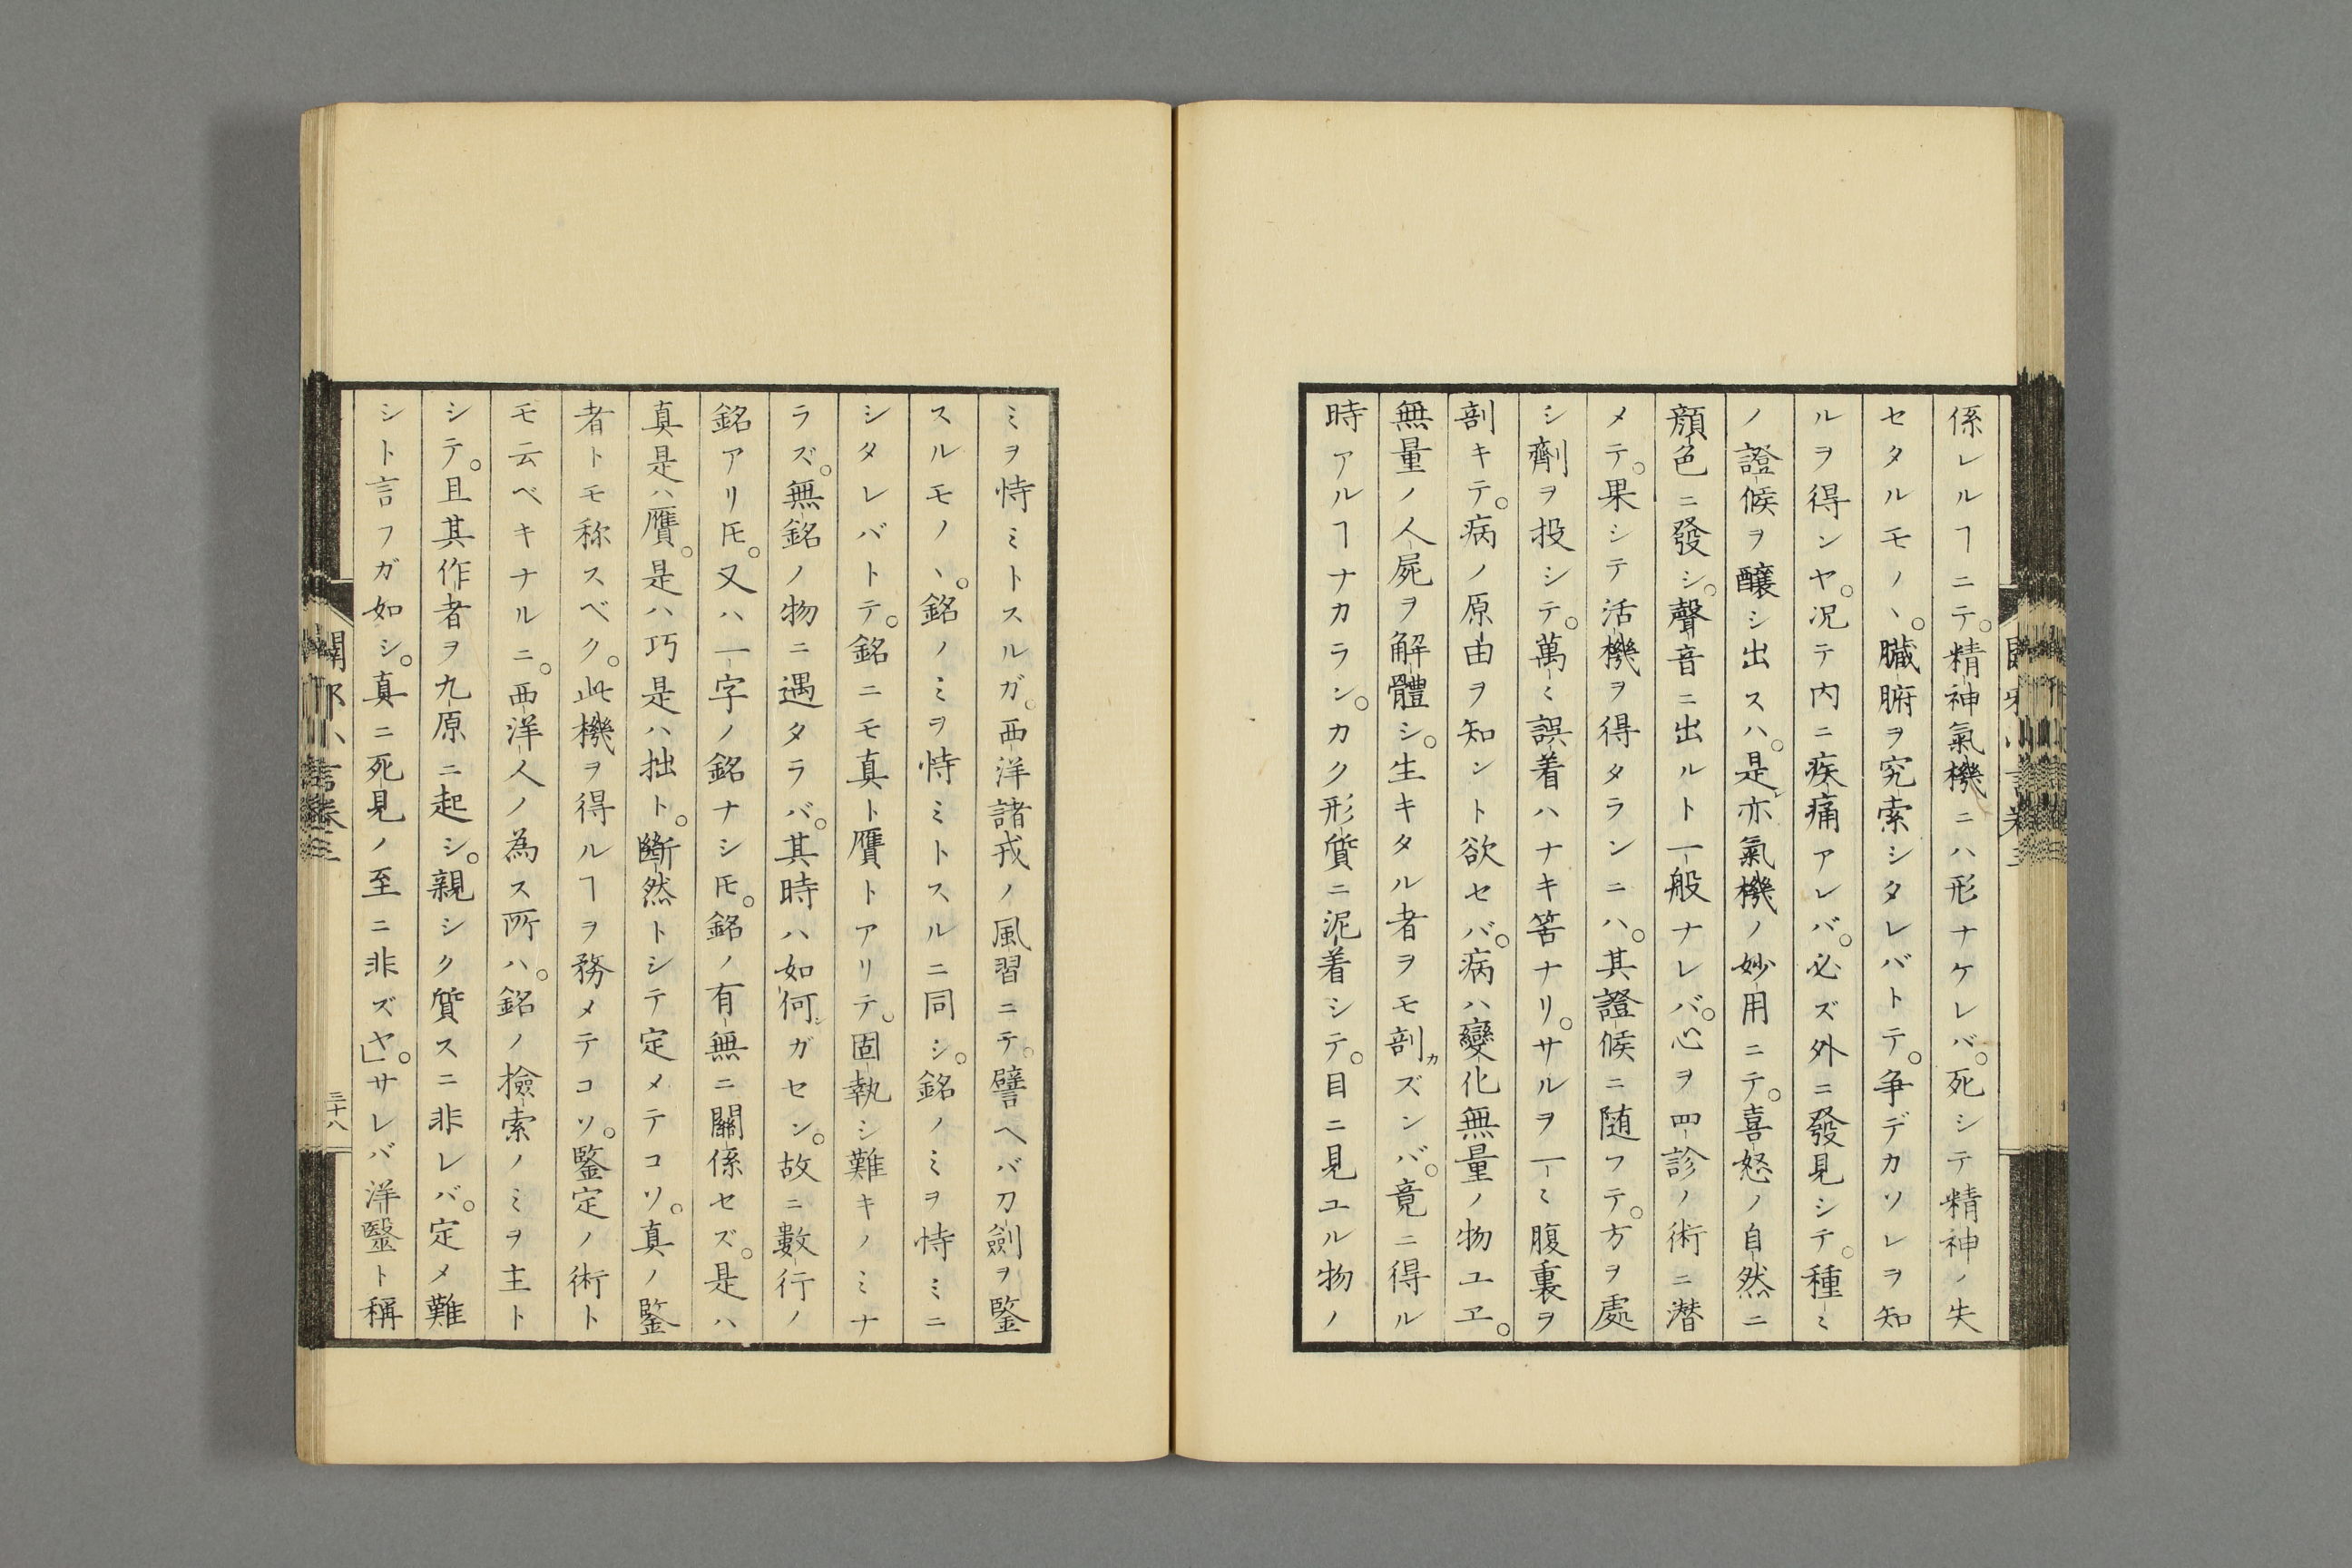 係レルヿニテ。精神氣機ニハ形ナケレバ。死シテ精神ノ失
セタルモノヽ。臓腑ヲ究索シタレバトテ。争デカソレヲ知
ルヲ得ンヤ。况テ内ニ疾痛アレバ。必ズ外ニ發見シテ。種〻
ノ證候ヲ醸シ出スハ。是亦氣機ノ妙用ニテ。喜怒ノ自然ニ
顔色ニ發シ。聲音ニ出ルト一般ナレバ。心ヲ四診ノ術ニ潜
メテ。果シテ活機ヲ得タランニハ。其證候ニ随フテ。方ヲ處
シ劑ヲ投シテ。萬〻誤着ハナキ筈ナリ。サルヲ一〻腹裏ヲ
剖キテ。病ノ原由ヲ知ント欲セバ。病ハ變化無量ノ物ユヱ。
無量ノ人屍ヲ解體シ。生キタル者ヲモ剖カズンバ。竟ニ得ル
時アルヿナカラン。カク形質ニ泥着シテ。目ニ見ユル物ノ
ミヲ恃ミトスルガ。西洋諸戎ノ風習ニテ。譬ヘバ刀劍ヲ鑒
スルモノヽ。銘ノミヲ恃ミトスルニ同シ。銘ノミヲ恃ミニ
シタレバトテ。銘ニモ真ト贋トアリテ。固執シ難キノミナ
ラズ。無銘ノ物ニ遇タラバ。其時ハ如何ンガセン。故ニ數行ノ
銘アリ𪜈。又ハ一字ノ銘ナシ𪜈。銘ノ有無ニ關係セズ。是ハ
真是ハ贋。是ハ巧是ハ拙ト。斷然トシテ定メテコソ。真ノ鑒
者トモ称スベク。此機ヲ得ルヿヲ務メテコソ。鑒定ノ術ト
モ云ベキナルニ。西洋人ノ為ス所ハ。銘ノ撿索ノミヲ主ト
シテ。且其作者ヲ九原ニ起シ。親シク質スニ非レバ。定メ難
シト言フガ如シ。真ニ死見ノ至ニ非ズヤ。」サレバ洋醫ト稱
闢邪小言卷三
三十八